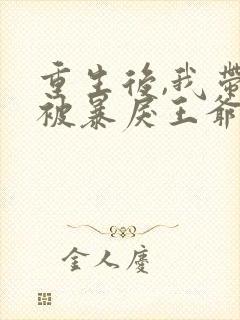 重生後,我帶
被暴戾王爺
金人慶